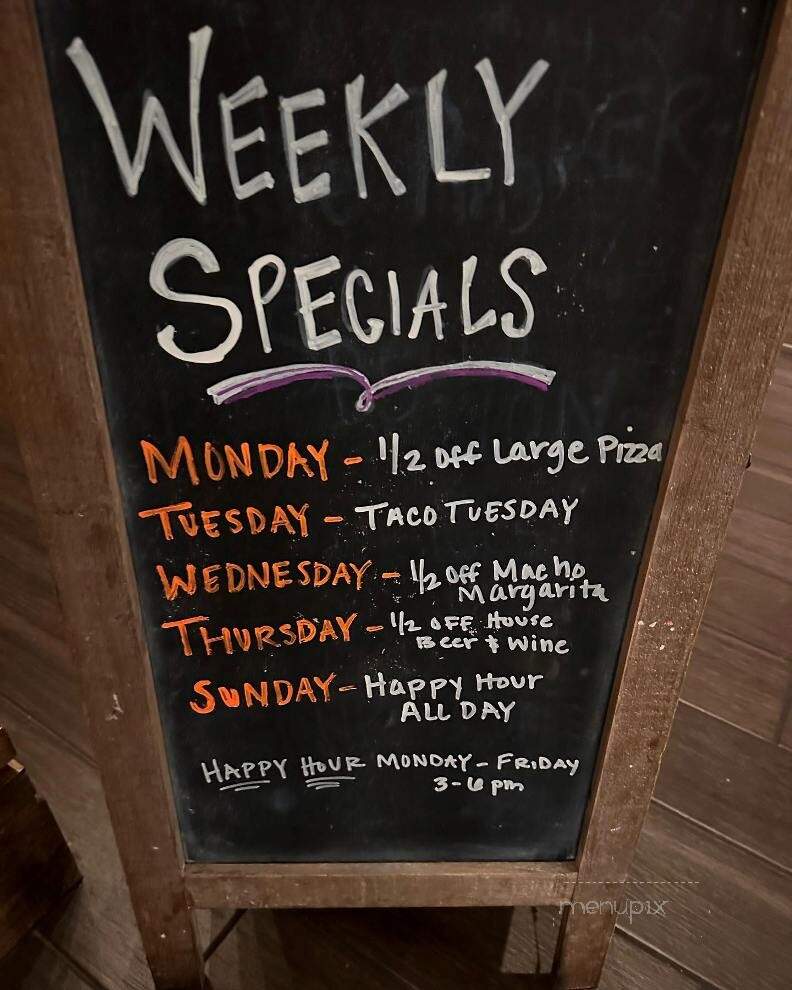 WEEKLY
SPECIALS
MONDAY - 1/2 off Large Pizza
TUESDAY - TACO TUESDAY
WEDNESDAY - 1/2 off Macho
Margarita
THURSDAY - 1/2 OFF House
Beer & Wine
SUNDAY - Happy Hour
ALL DAY
HAPPY HOUR MONDAY - FRIDAY
3-6 pm
menupix